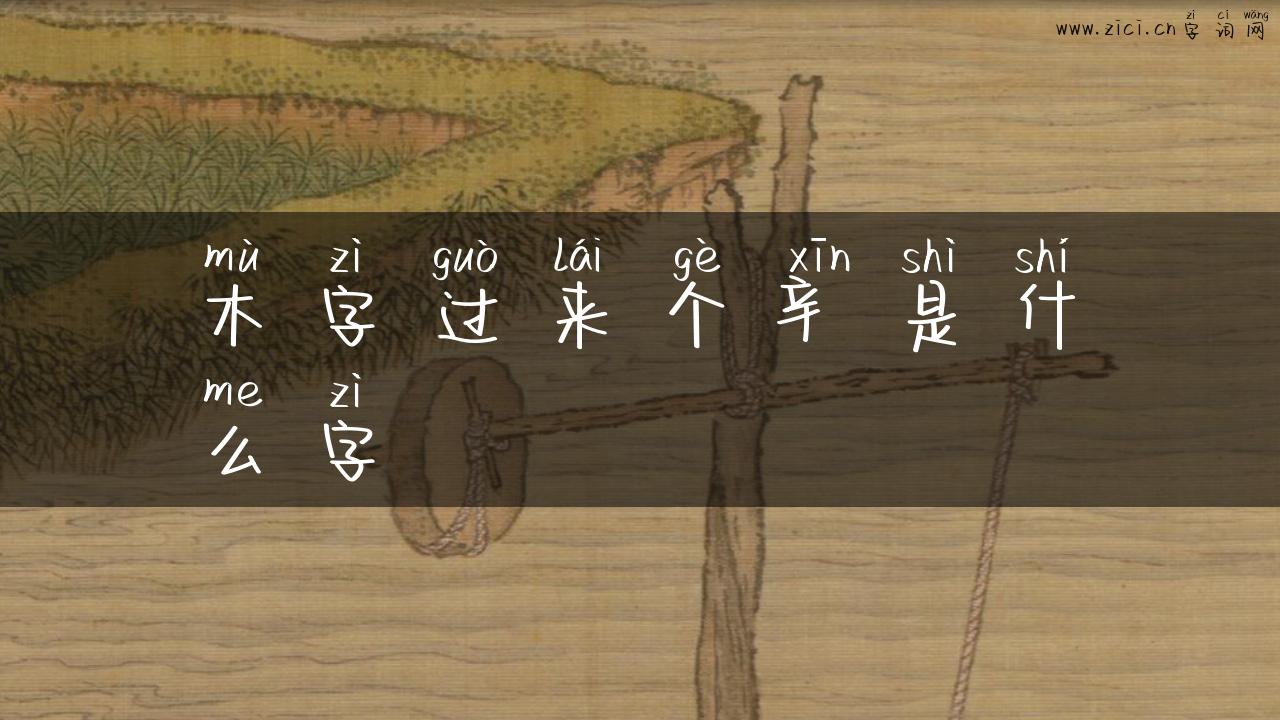 zì cí wǎng
www.zici.cn 字词网
mù zì guò lái gè xīn shì shí
木字过来个辛是什
me zì
么字